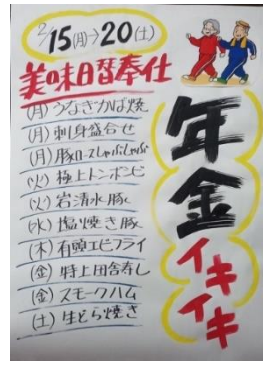 2/15(月)→20(土)
美味日替奉仕
(月)うなぎかば焼
(月)刺身盛合せ
(月)豚ロースしゃぶしゃぶ
(火)極上トンボシビ
(火)岩清水豚
(水)塩焼き豚
(木)有頭エビフライ
(金)特上田舎寿し
(金)スモークハム
(土)生どら焼き
年金
イキイキ